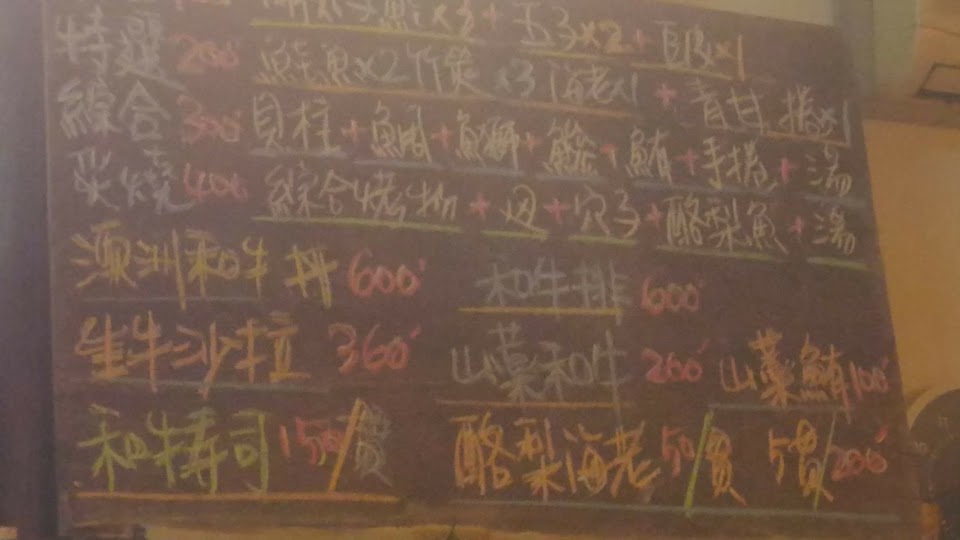 ×3+玉子×2+ ×1
特選 200 ×2竹筴×3海老×1+青甘 捲×1
綜合 300 貝柱+鯛+鰤+鮭+鮪+手捲+湯
炙燒 400 綜合烤物+ +穴子+酪梨魚+湯
澳洲和牛排 600 和牛排 600
生牛沙拉 360 山藥和牛 200 山藥鮪 100
和牛壽司 150/貫 酪梨海老 50/貫 5貫/200